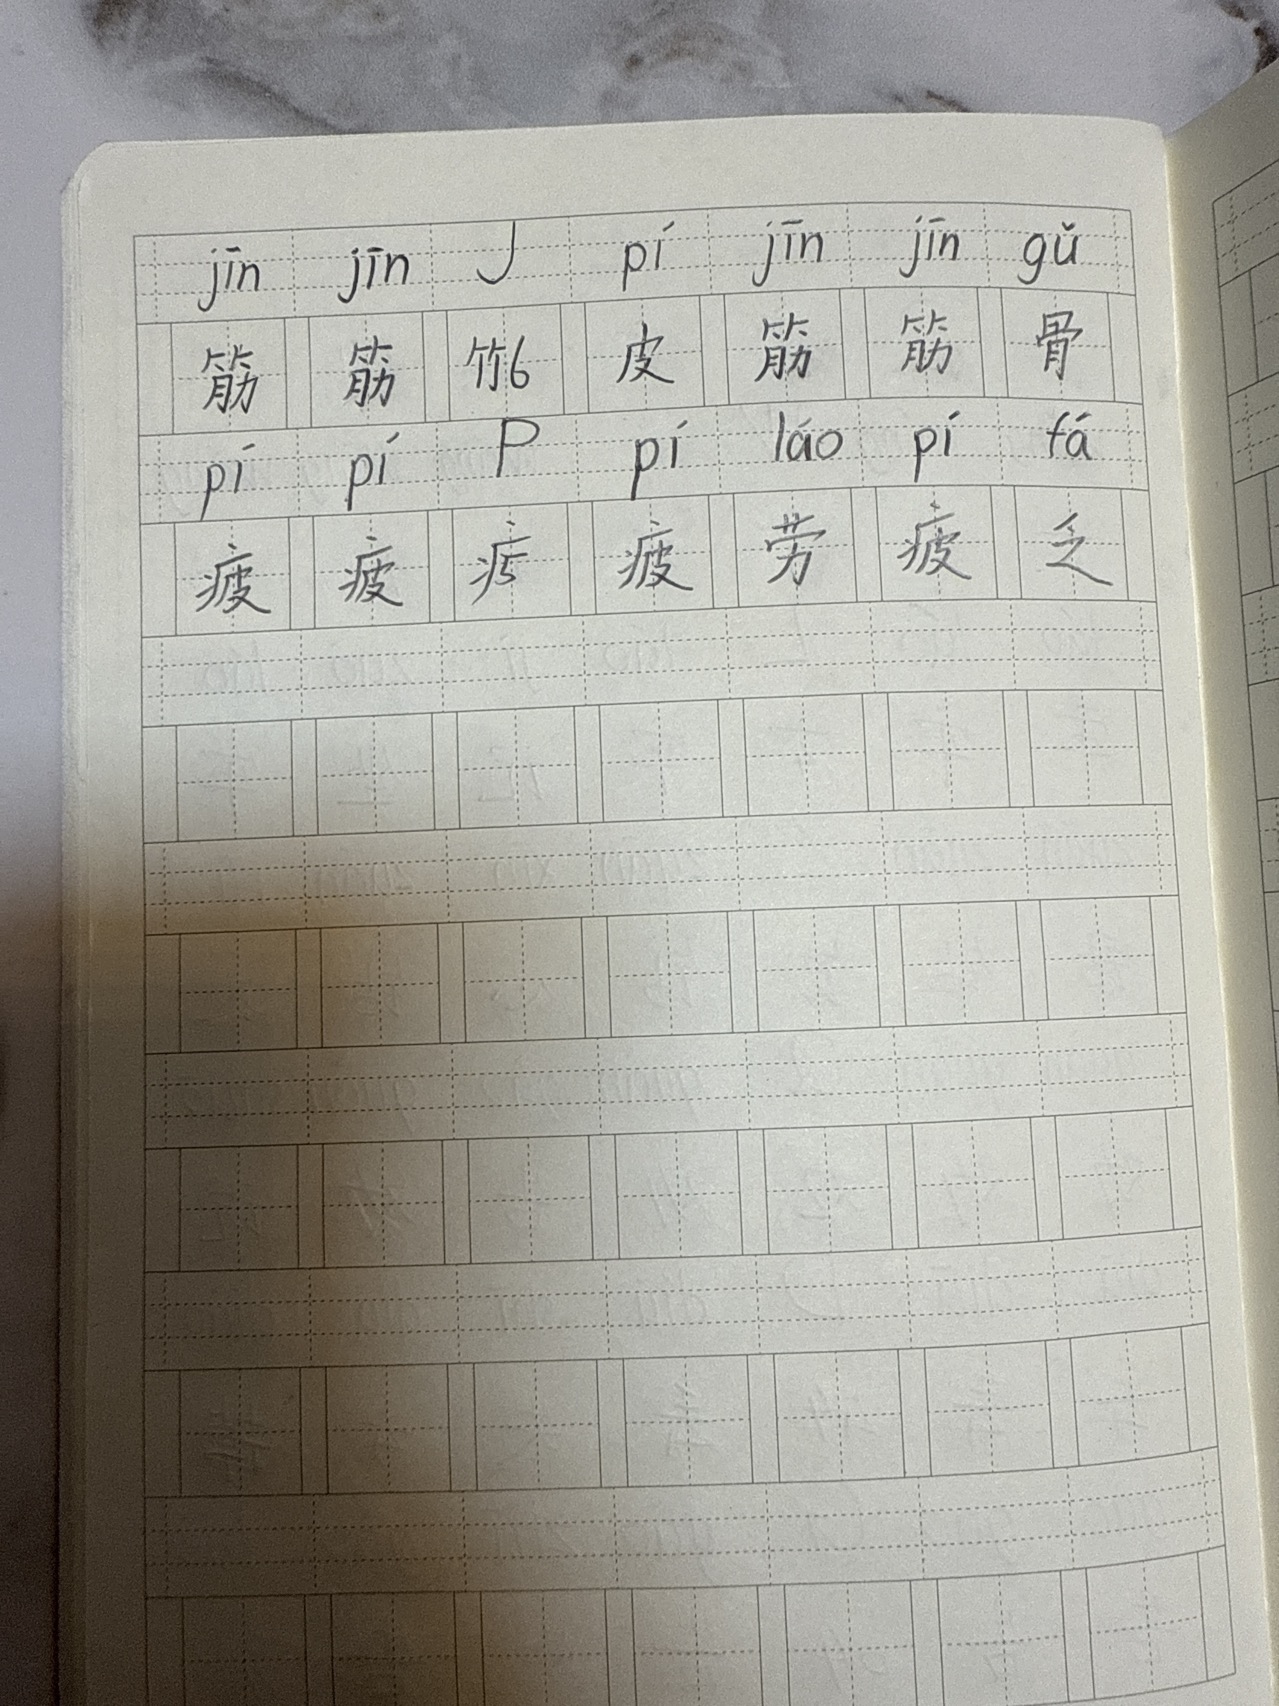 jīn jīn J pí jīn jīn gǔ
筋 筋 竹6 皮 筋 筋 骨
pí pí P pí láo pí fá
疲 疲 疒5 疲 劳 疲 乏